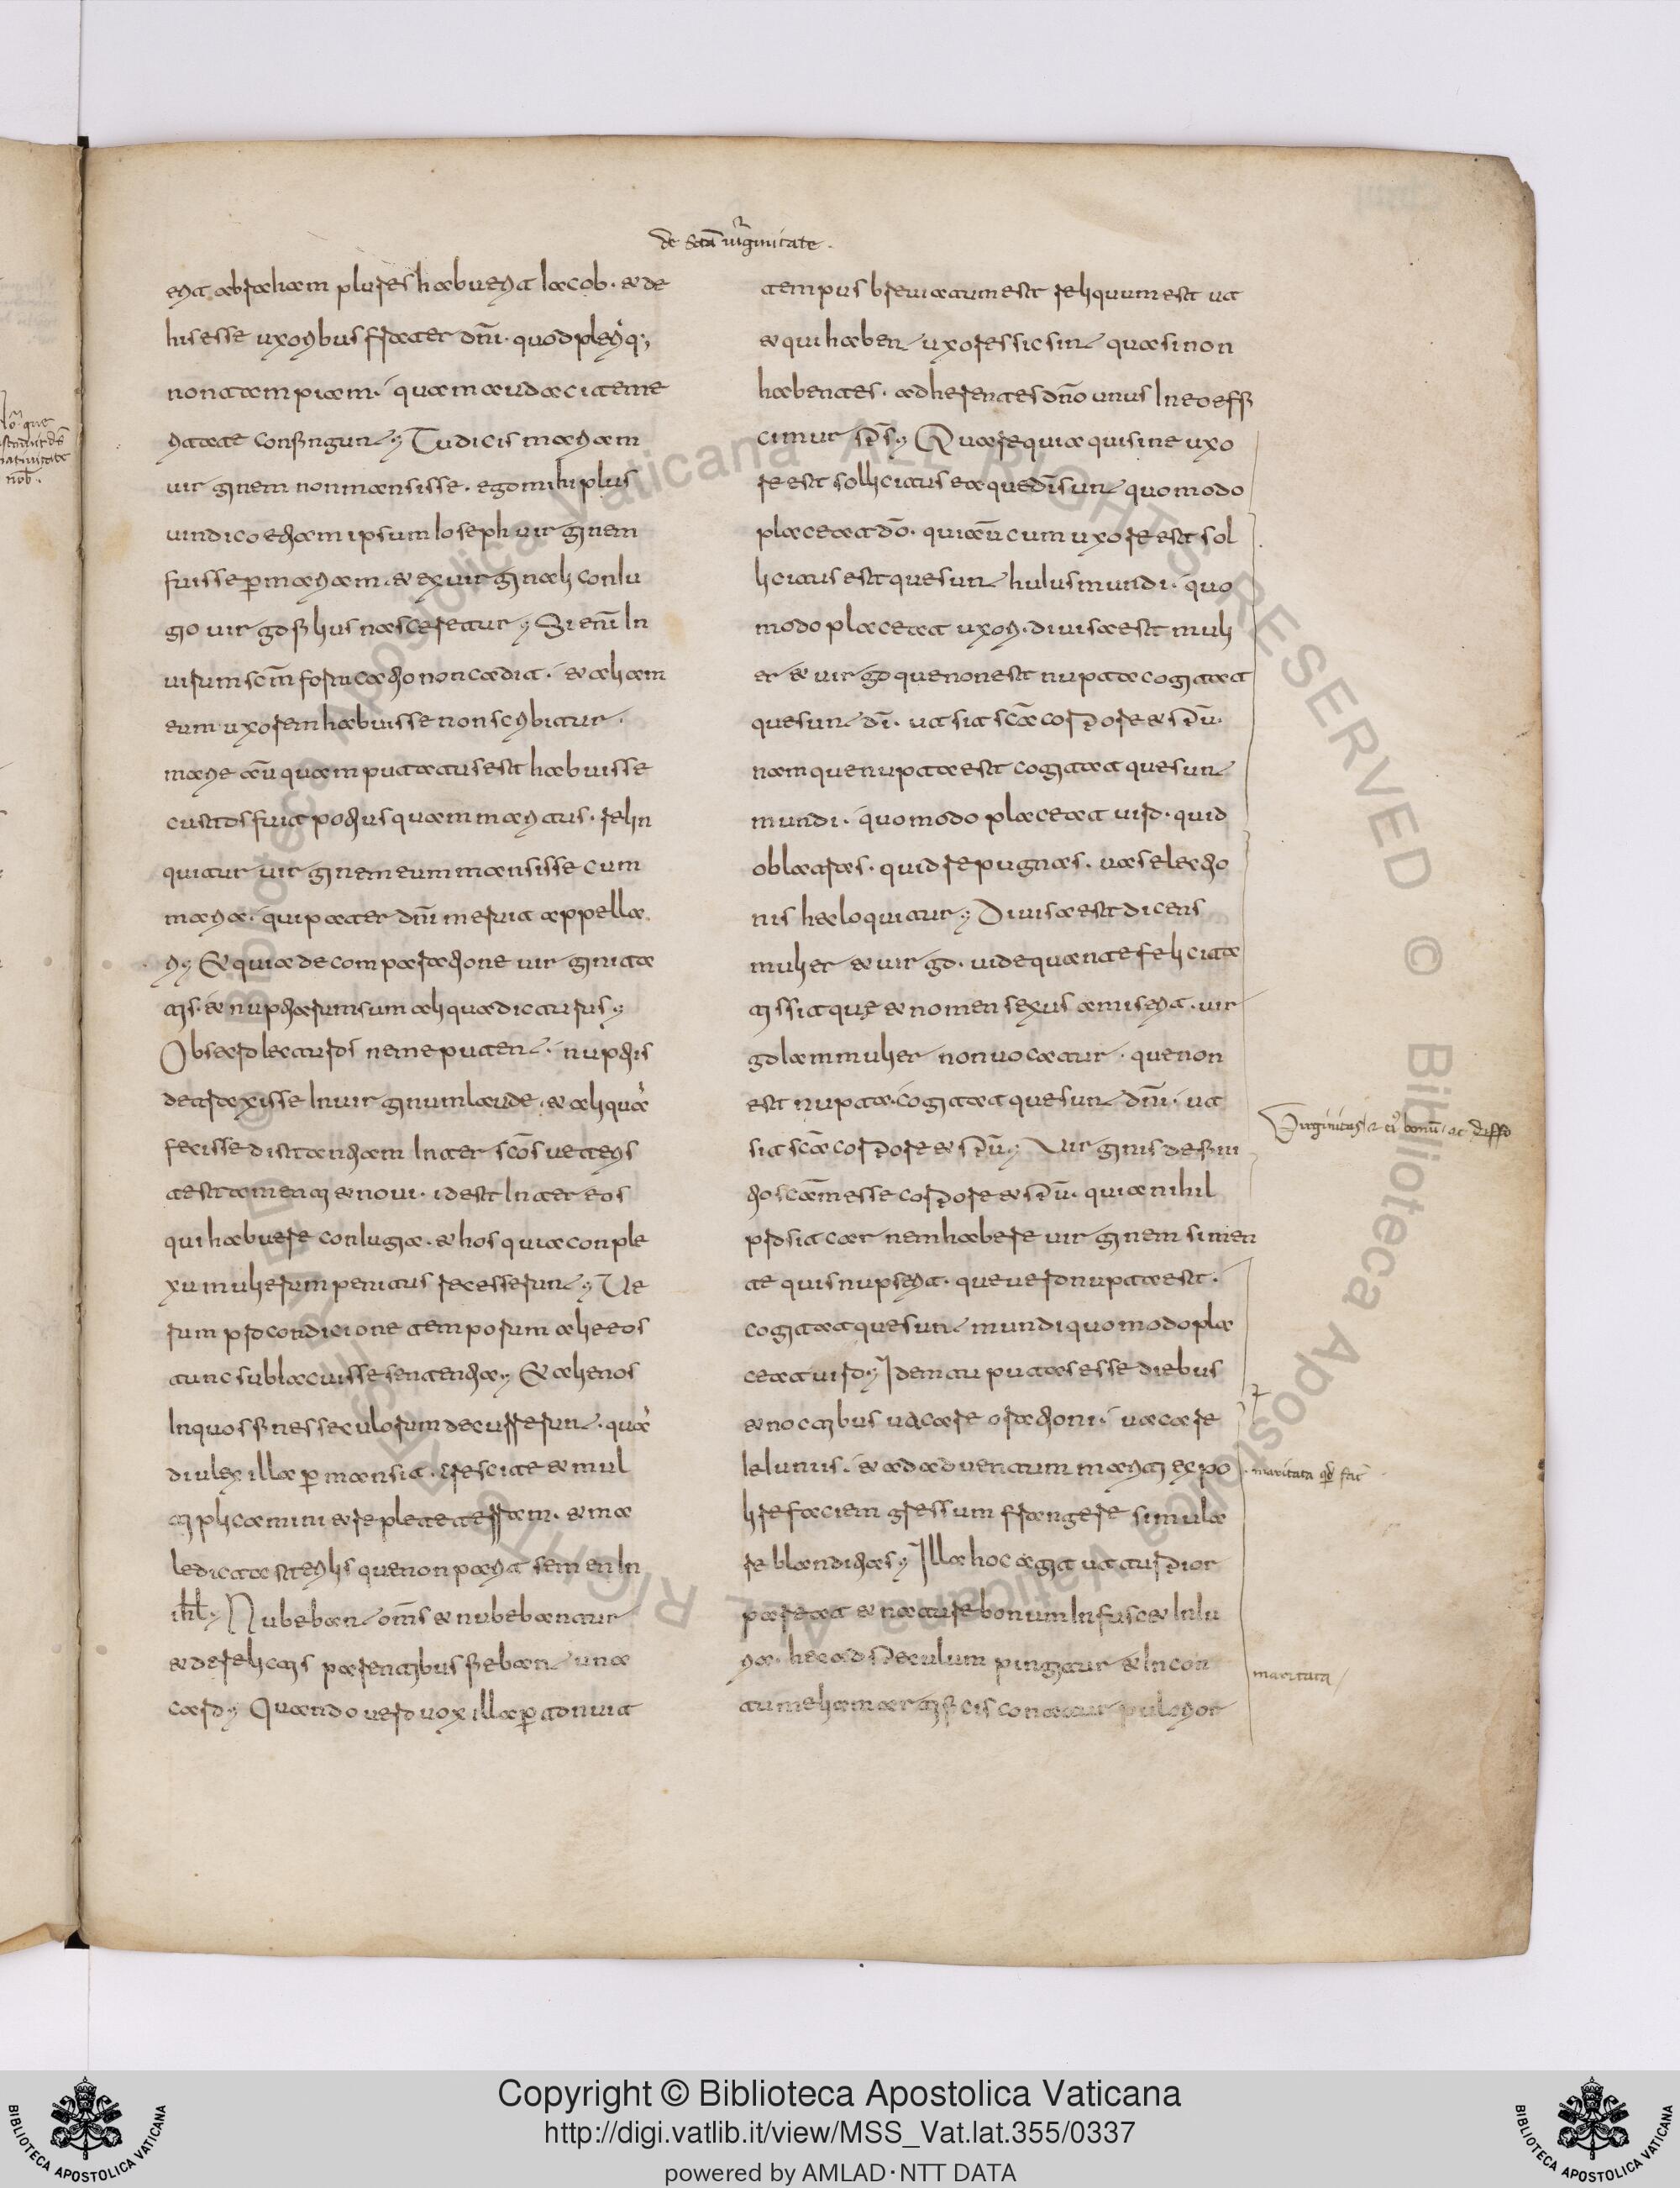 de scta v̄ginitate.
erit abraham plures habuerit Iacob. & de
his esse uxoribus fratres dn̄i. quod pleriq;
non tam piam. quam audaci teme
ritate confingunt. Tu dicis mariam
uirginem non mansisse. ego mihi plus
uindico etiam ipsum Ioseph uirginem
fuisse p̄ mariam. & ex uirginali coniu
gio uirgo filius nasceretur. Si enī in
uirum sc̄m fornicatio non cadit. & aliam
eum uxorem habuisse non scribitur.
marie aū quam putatus est habuisse
custos fuit potius quam maritus. relin
quitur uirginem eum mansisse cum
maria. qui pater dn̄i meruit appella
ri. Et quia de comparatione uirginita
tis. & nuptiarum sum aliqua dicturus.
Obsecro lecturos ne me putent. nuptiis
detraxisse in uirginum laude. & aliqua
fecisse distantiam inter sc̄os ueteris
testamenti & noui. id est inter eos
qui habuere coniugia. & hos qui a conple
xu mulierum penitus recesserunt. Ve
rum pro condicione temporum alie eos
tunc subiacuisse sententiae. Et alie nos
In quos fines seculorum decurrerunt. qua
diu lex illa p̄mansit. crescite & mul
tiplicamini & replete terram. & ma
ledicta sterilis que non parit semen in
ihl̄. Nubebant om̄s & nubebantur
& derelictis parentibus fiebant una
caro. Quando uero uox illa p̄tonuit
tempus breuiatum est reliquum est ut
& qui habent uxores sic sint quasi non
habentes. adherentes dn̄o unus In eo effi
cimur sp̄s. Quare quia qui sine uxo
re est sollicitus est a que dī sunt quomodo
placeat dō. qui aū cum uxore est sol
licitus est que sunt huius mundi. quo
modo placeat uxori. diuisa est muli
er & uirgo que non est nupta cogitat
que sunt dī. ut sit sc̄a corpore & sp̄u.
nam que nupta est cogitat que sunt
mundi. quomodo placeat uiro. quid
oblatras. quid repugnas. uas electio
nis hec loquitur. Diuisa est dicens
mulier & uirgo. uide quante felicita
tis sit que & nomen sexus amiserit. uir
go iam mulier non uocatur. que non
est nupta. cogitat que sunt dn̄i. ut
sit sc̄a corpore & sp̄u. Virginis defini
tio sc̄am esse corpore & sp̄u. quia nihil
prosit carnem habere uirginem si men
te quis nupserit. que uero nupta est.
cogitat que sunt mundi quomodo pla
ceat uiro. Idem tu putas esse diebus
& noctibus uacare orationi. uacare
ieiuniis. & ad aduentum mariti expo
lire faciem gressum frangere simula
re blanditias. Illa hoc agit ut turpior
pareat & nature bonum Infuscet Iniu
ria. hec ad speculum pingitur & In con
tumeliam artificis conatur pulcrior
Virginitas
maritata qd fac
maritata
Copyright © Biblioteca Apostolica Vaticana
http://digi.vatlib.it/view/MSS_Vat.lat.355/0337
powered by AMLAD·NTT DATA
BIBLIOTECA APOSTOLICA VATICANA
BIBLIOTECA APOSTOLICA VATICANA